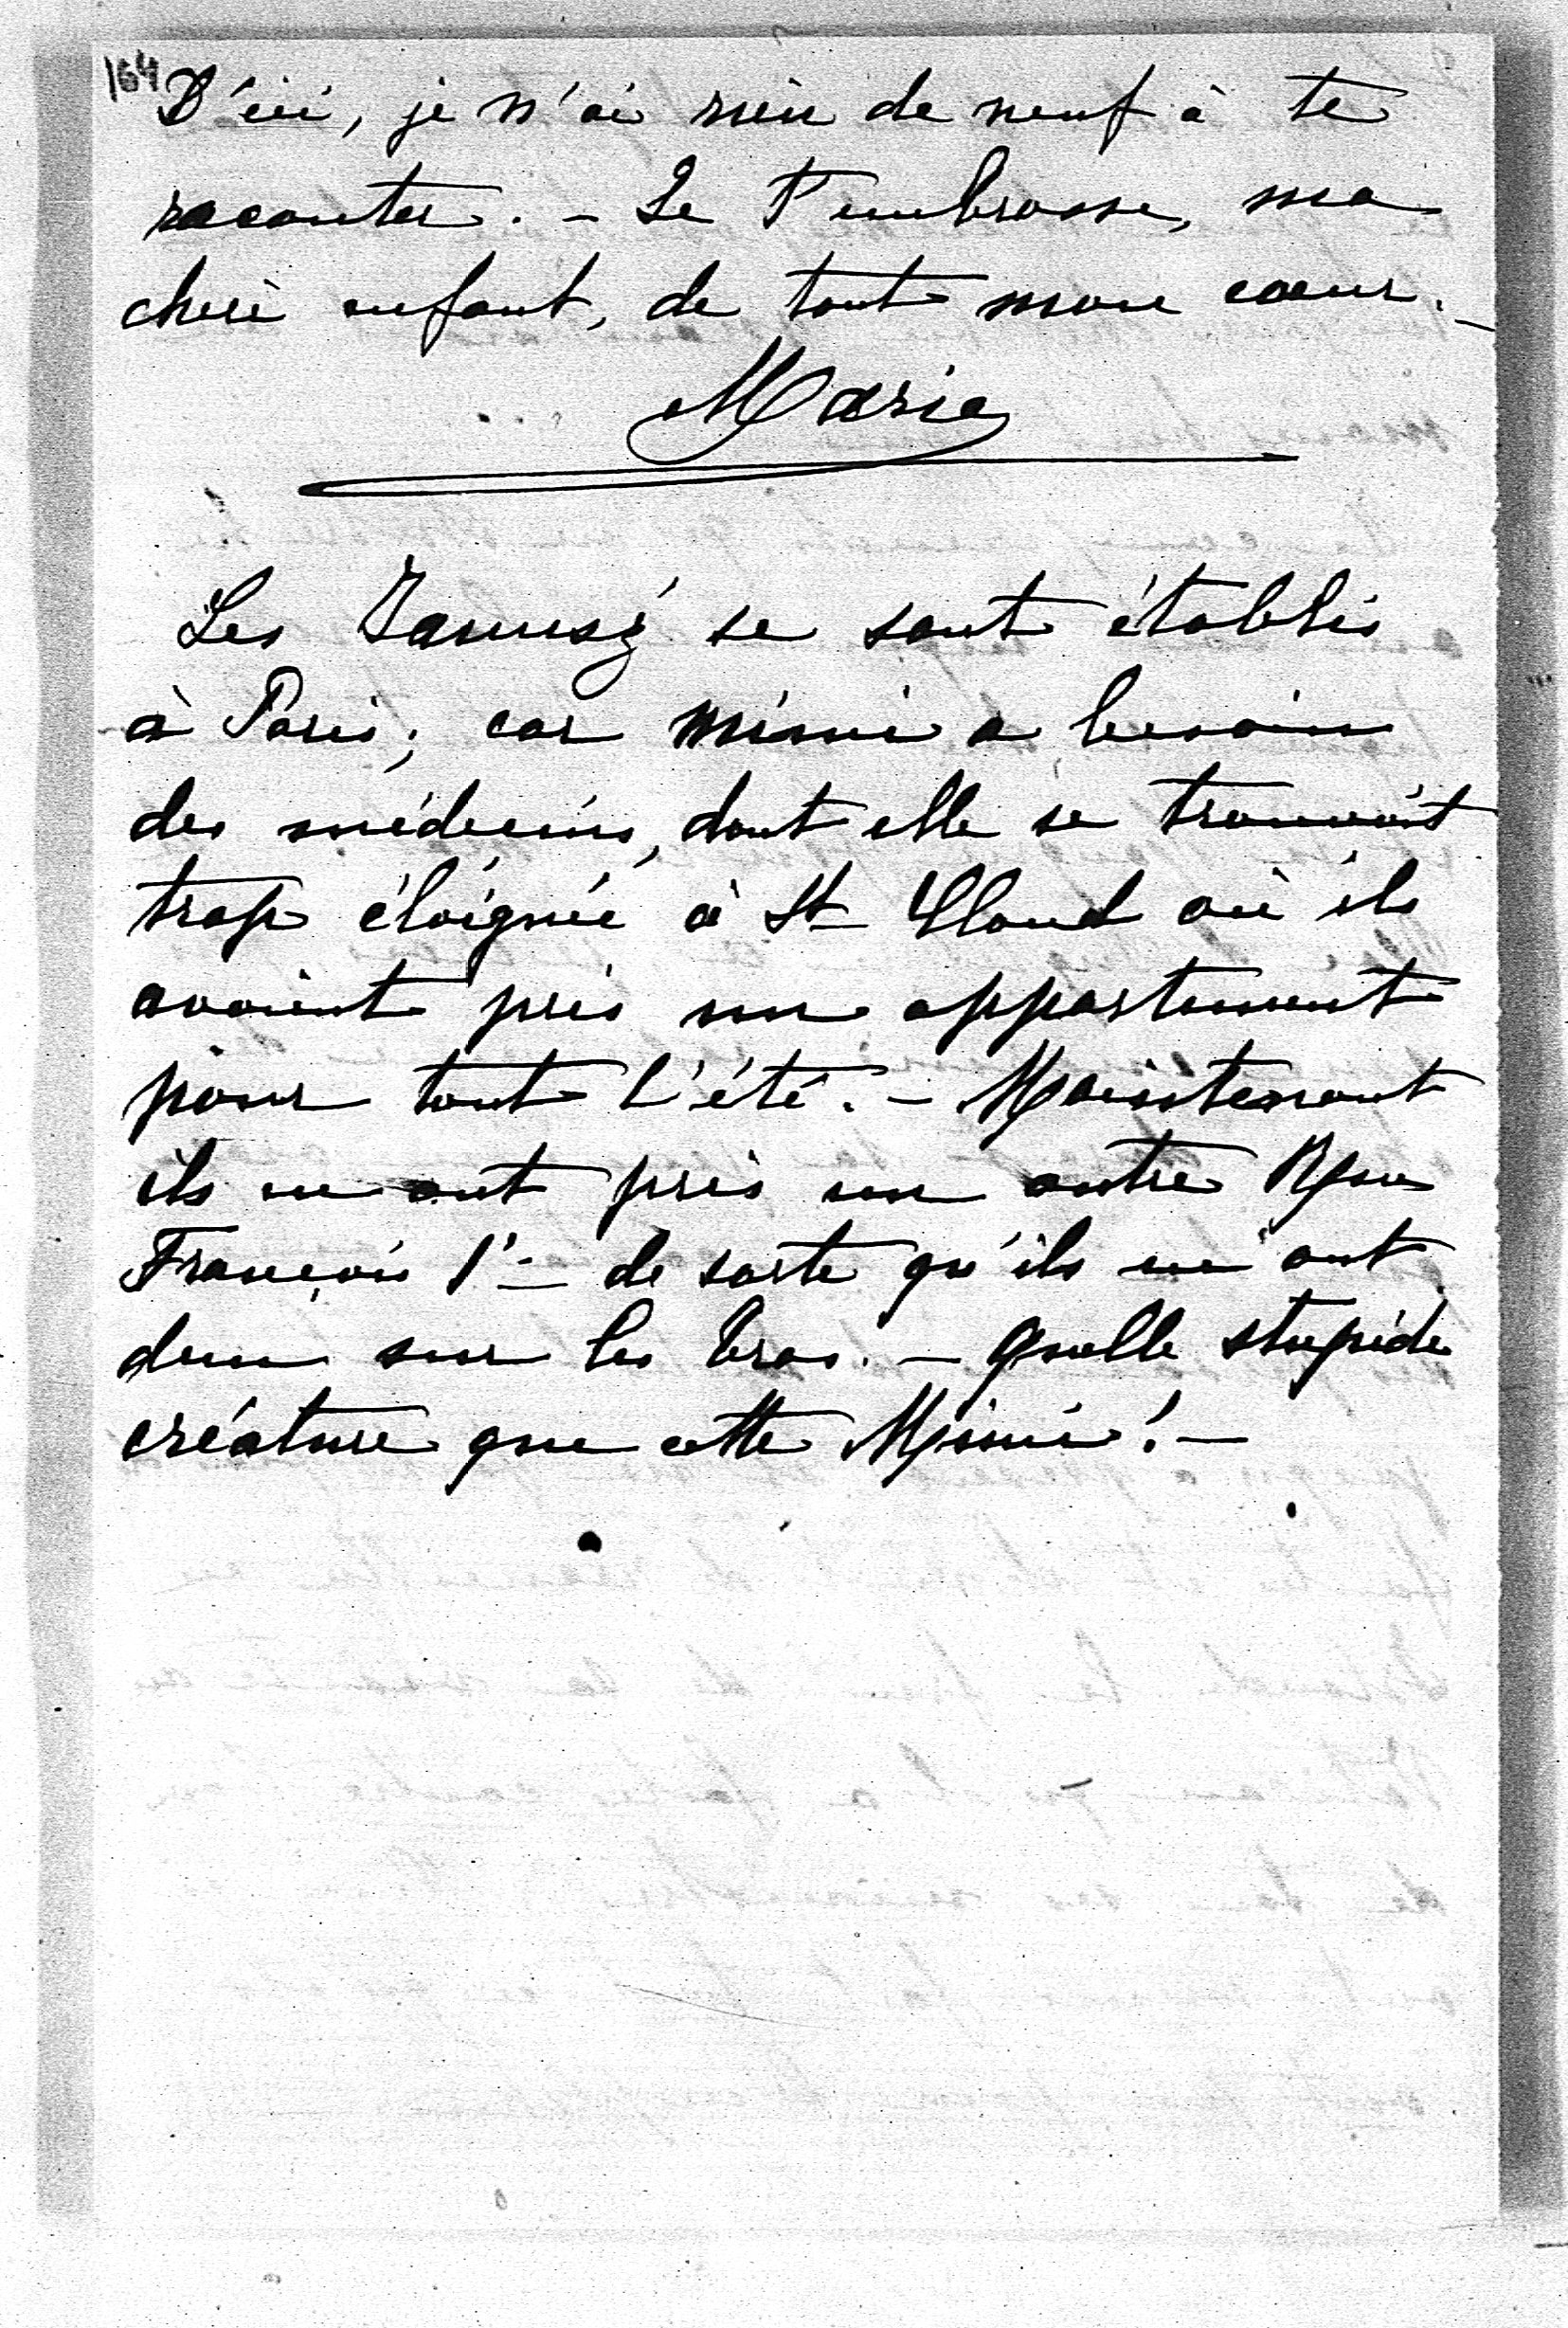 164
D'ici, je n'ai rien de neuf à te
raconter. – Je t'embrasse, ma
chère enfant, de tout mon cœur. –
Marie
Les Janusz se sont établis
à Paris; car Mimi a besoin
des médecins, dont elle se trouvait
trop éloignée à St Cloud où ils
avaient pris un appartement
pour tout l'été. – Maintenant
ils en ont pris un autre Rue
François 1er de sorte qu'ils en ont
deux sur les bras. – Quelle stupide
créature que cette Mimi! –